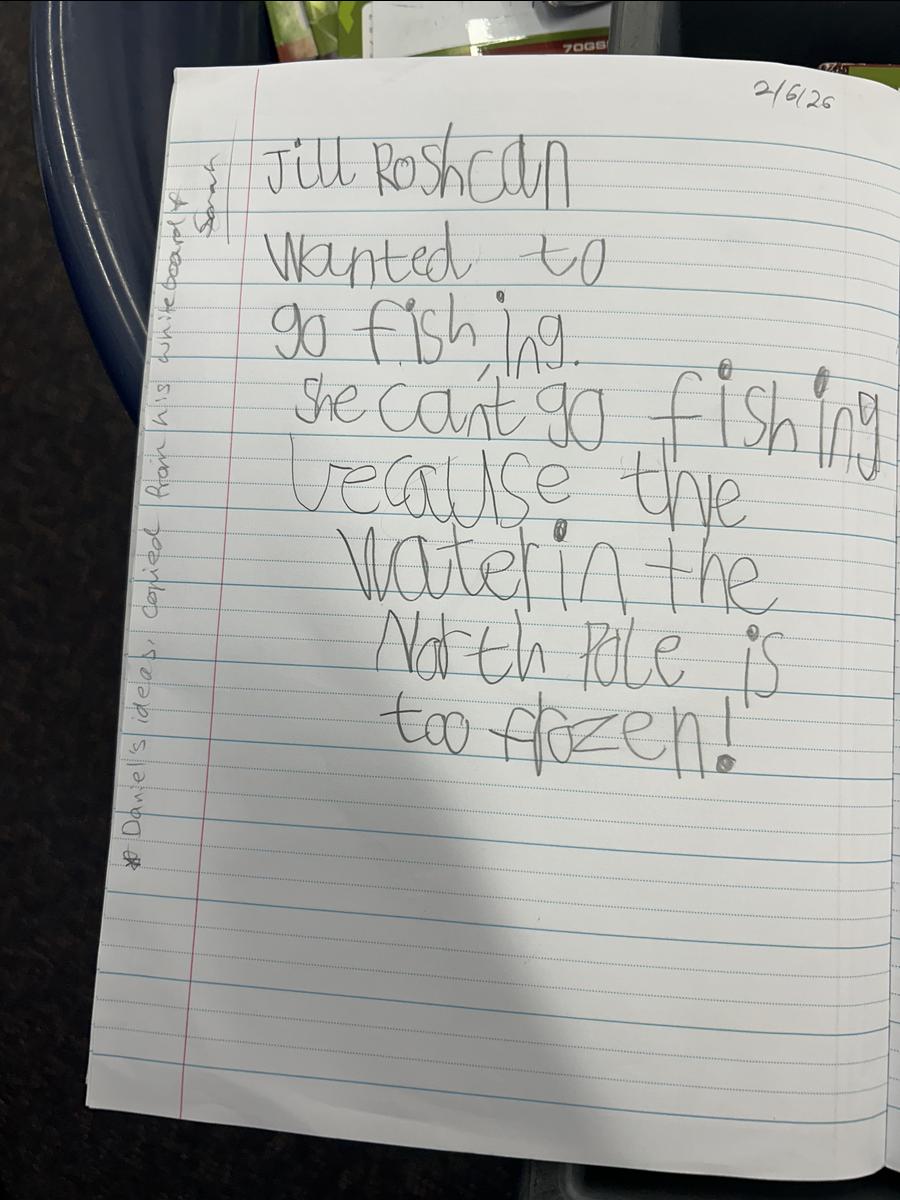 70GS
2/6/26
Jill Roshcan
Wanted to
go fishing.
She can't go fishing
because the
Water in the
North Pole is
too frozen!
* Daniel's ideas, copied from his whiteboard &